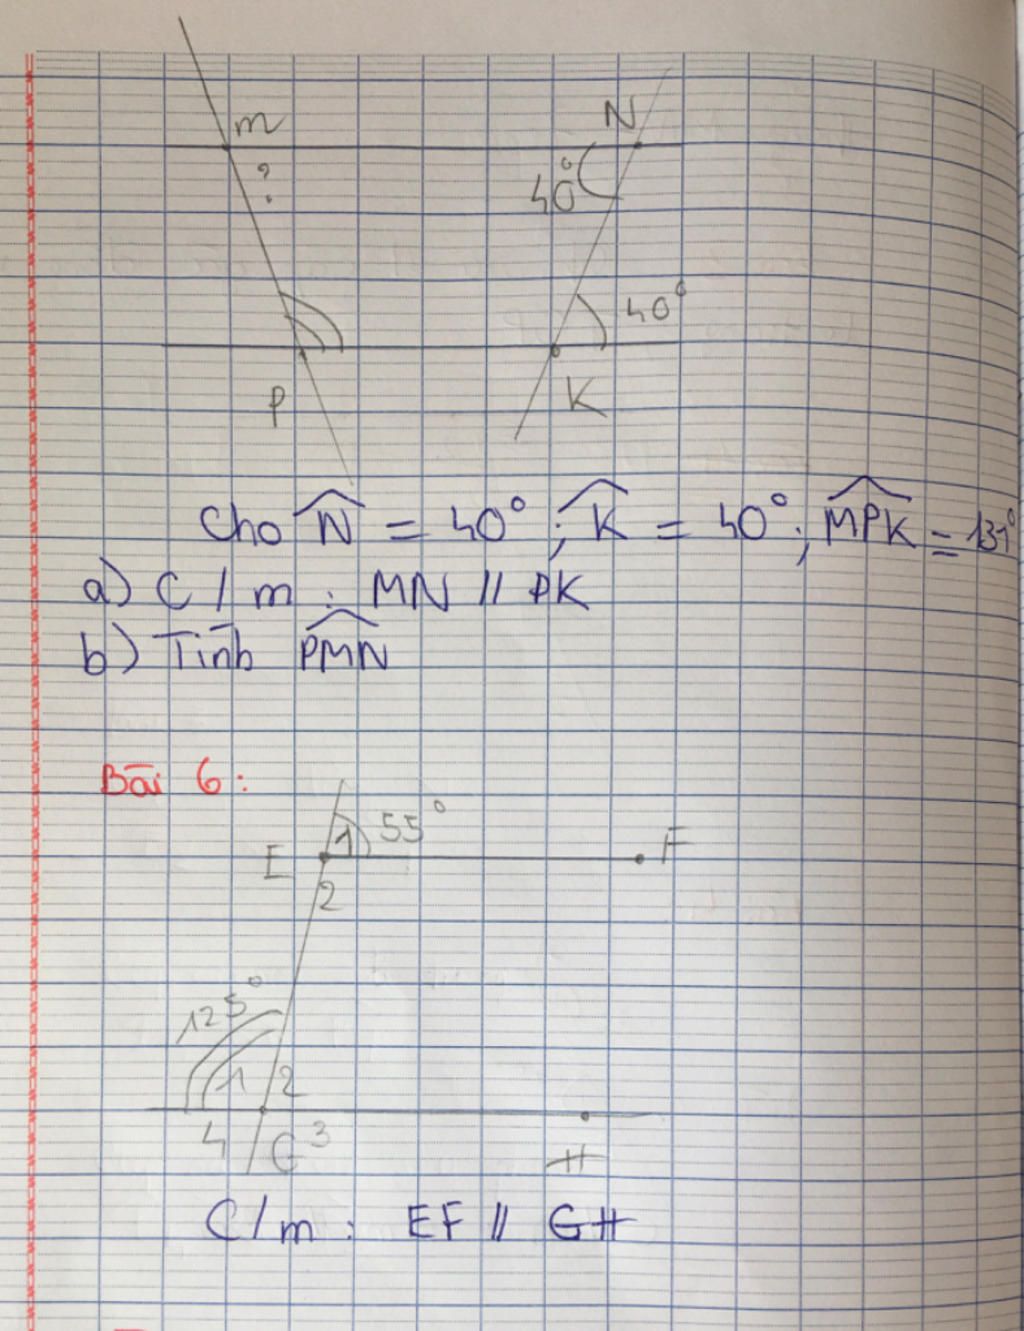 m
N
?
40°
40°
P
K
Cho N̂ = 40° ; K̂ = 40° ; M͡PK = 131°
a) C/m : MN // PK
b) Tính P͡MN
Bài 6 :
1 55°
E F
2
125°
1 2
4 G 3 H
C/m : EF // GH